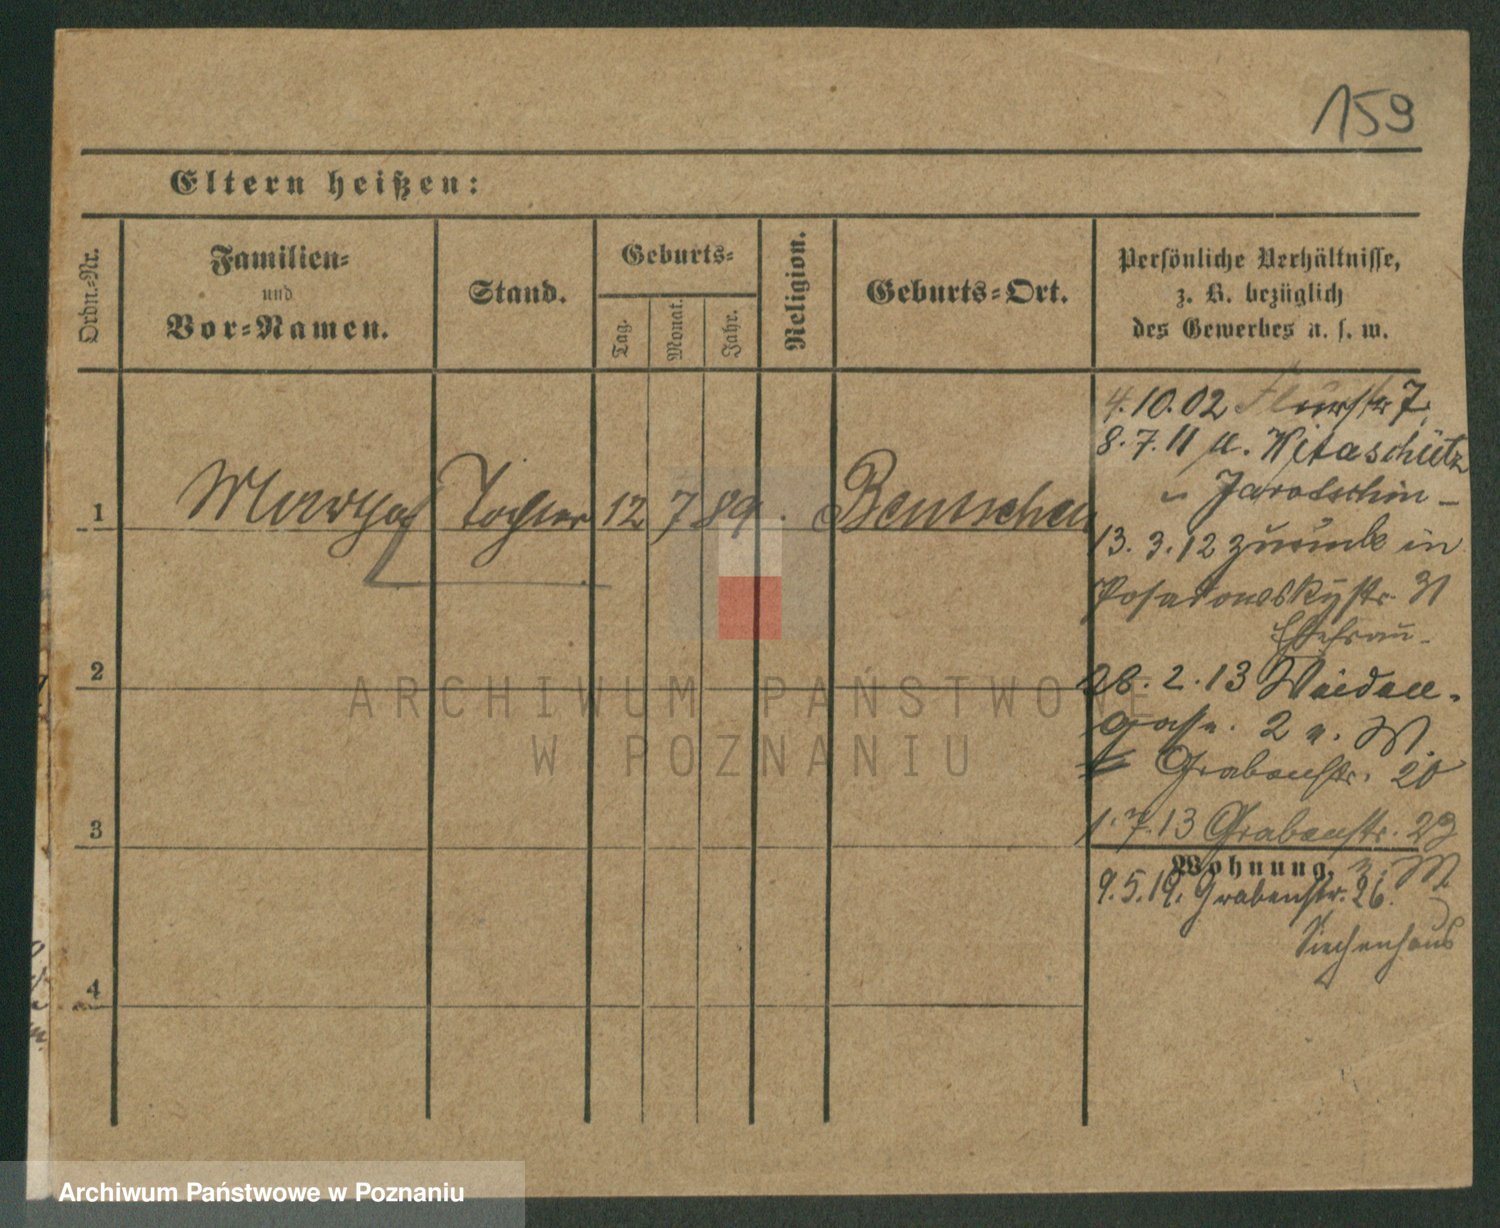 159
Eltern heißen:
Ordn.-Nr.
Familien-
und
Vor-Namen.
Stand.
Geburts-
Tag.
Monat.
Jahr.
Religion.
Geburts-Ort.
Persönliche Verhältnisse,
z. B. bezüglich
des Gewerbes u. s. w.
4.10.02 Flurstr 7.
8.7.11 n. Witaschütz
Jarotschin
1 Martha Tochter 12 7 89. Bentschen
13.3.12 zurück in
Posadowskystr. 31
Ehefrau
2
26.2.13 Weiden-
gasse. 2 n. W.
Grabenstr. 20
3
1.7.13 Grabenstr. 23
Wohnung.
9.5.19. Grabenstr. 26.
Siechenhaus
4
ARCHIWUM PAŃSTWOWE
W POZNANIU
Archiwum Państwowe w Poznaniu